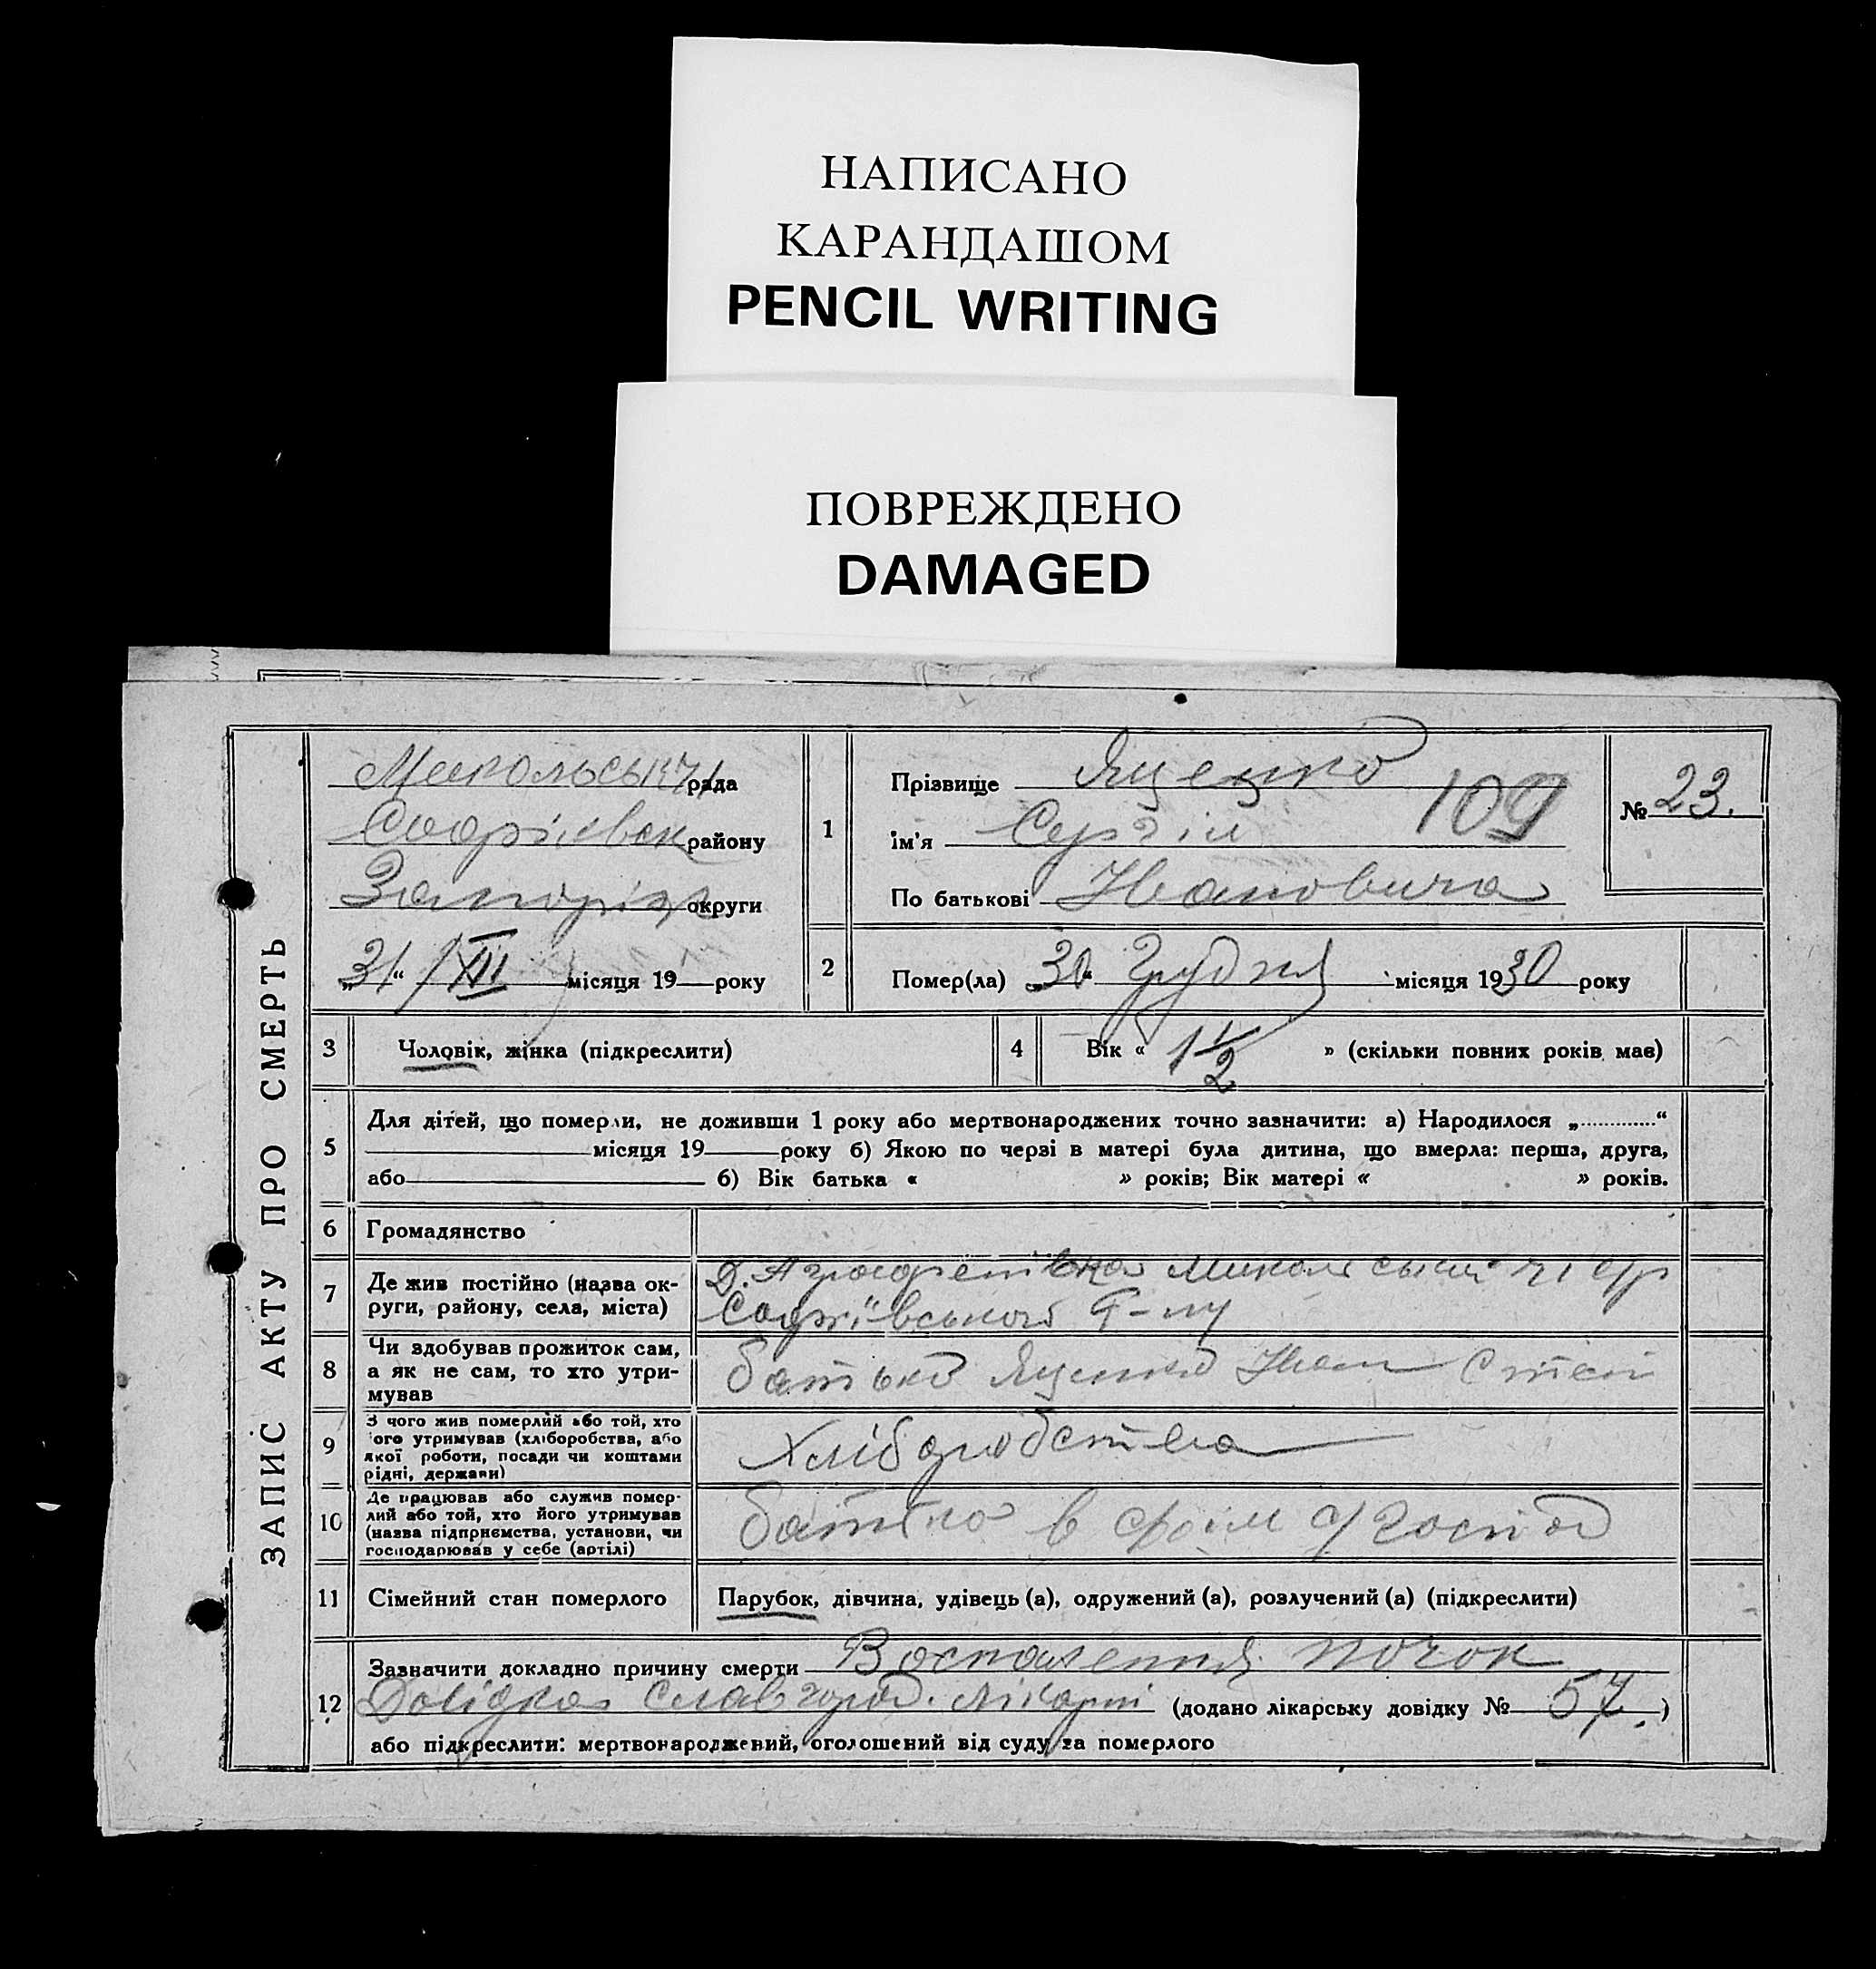 НАПИСАНО
КАРАНДАШОМ
PENCIL WRITING
ПОВРЕЖДЕНО
DAMAGED
ЗАПИС АКТУ ПРО СМЕРТЬ
рада
району
Запоріз округи
„31“ /XII місяця 19 року
1
Прізвище Яценко
109
ім'я Сергій
По батькові Ивановича
№ 23.
2
Помер(ла) „30“ Грудня місяця 1930 року
3 Чоловік, жінка (підкреслити)
4 Вік « 1 1/2 » (скільки повних років має)
5
Для дітей, що померли, не доживши 1 року або мертвонароджених точно зазначити: а) Народилося „............“
місяця 19 року б) Якою по черзі в матері була дитина, що вмерла: перша, друга,
або б) Вік батька « » років; Вік матері « » років.
6 Громадянство
7
Де жив постійно (назва ок-
руги, району, села, міста)
Софіївського р-ну
8
Чи здобував прожиток сам,
а як не сам, то хто утри-
мував
батько Яценко Иван Степ
9
З чого жив померлий або той, хто
ого утримував (хліборобства, або
якої роботи, посади чи коштами
рідні, держави)
Хліборобства
10
Де працював або служив помер-
лий або той, хто його утримував
(назва підприємства, установи, чи
господарював у себе (артілі)
батько в своїм с/господ
11 Сімейний стан померлого
Парубок, дівчина, удівець (а), одружений (а), розлучений (а) (підкреслити)
12
Зазначити докладно причину смерти Воспаления почок
Довідка Славгород. лікарні (додано лікарську довідку № 57.)
або підкреслити: мертвонароджений, оголошений від суду за померлого